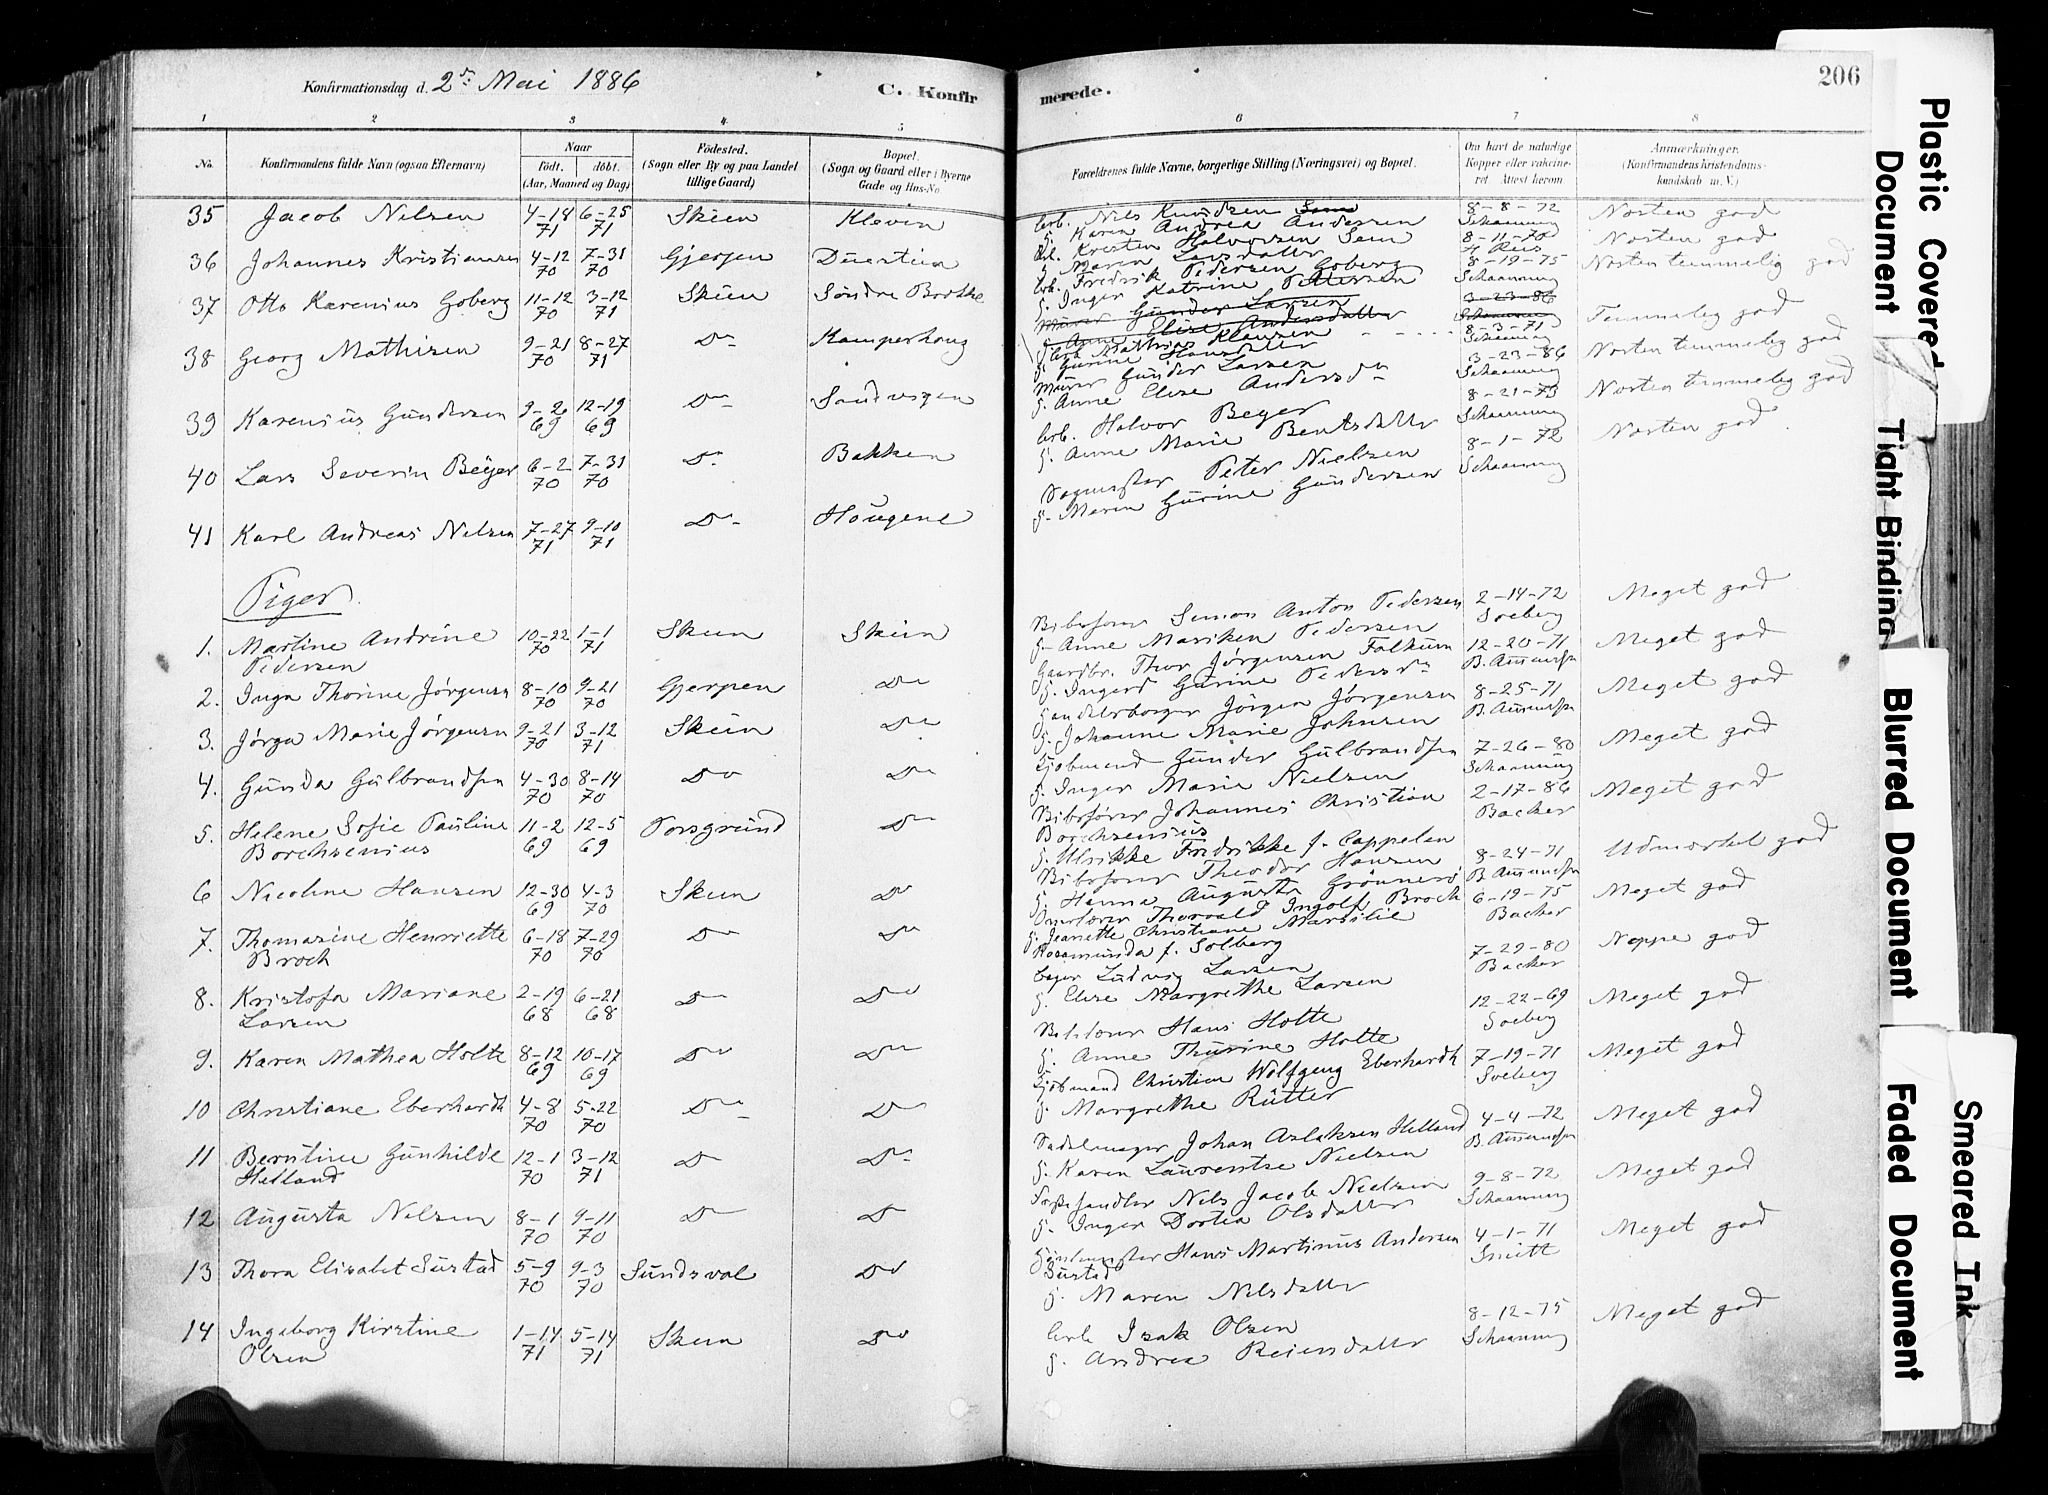 Konfirmationsdag d. 2den Mai 1886
C. Konfirmerede.
206
1 2 3 4 5 6 7 8
No. Konfirmandens fulde Navn (ogsaa Efternavn) Naar født. døbt. (Aar, Maaned og Dag) Fødested. (Sogn eller By og paa Landet tillige Gaard) Bopæl. (Sogn og Gaard eller i Byerne Gade og Hus-No.
Forældrenes fulde Navne, borgerlige Stilling (Næringsvei) og Bopæl. Om havt de naturlige Kopper eller vaccineret. Attest herom. Anmærkninger. (Konfirmandens kristendomskundskab m. V.)
35 Jacob Nilsen 4-18 71 6-25 71 Skien Kleven
Arb. Nils Knudsen
g. Karen Andrea Andersen 8-8-72 Schaanning Næsten god
36 Johannes Kristiansen 4-12 70 7-31 70 Gjerpen
Kristen Halvorsen Sem
g. Maren Larsdatter 8-11-70 Næsten god
37 Otto Karenius Goberg 11-12 70 3-12 71 Skien Søndre Brække
Arb. Fredrik Pedersen Goberg
g. Inger Katrine Pettersen 8-19-75 Schaanning Næsten temmelig god
Murer Gunder Larsen
g. Anne Elise Andersdatter 3-23-86 Schaanning
38 Georg Mathisen 9-21 70 8-27 71 Do Kamperhaug
Arb. Mathias Klausen
g. Gurine Hansdatter 8-3-71 Schaanning Temmelig god
39 Karenius Gundersen 9-2 69 12-19 69 Do Sandvigen
Murer Gunder Larsen
g. Anne Elise Andersdr 3-23-86 Schaanning Næsten temmelig god
40 Lars Severin Beyer 6-2 70 7-31 70 Do Bakken
Arb. Halvor Beyer
g. Anne Marie Bentsdatter 8-21-73 Schaanning Næsten temmelig god
41 Karl Andreas Nelsen 7-27 71 9-10 71 Do Hougene
Sagmester Peter Nielsen
g. Maren Gurine Gundersen 8-1-72 Schaanning Næsten god
Piger
1. Martine Andrine Pedersen 10-22 70 1-1 71 Skien Skien
Simon Anton Pedersen
g. Anne Mariken Pedersen 2-14-72 Soeberg Meget god
2. Inga Thorine Jørgensen 8-10 70 9-21 70 Gjerpen Do
Gaardbr. Thor Jørgensen Falkum
g. Ingerd Gurine Pedersdr 12-20-71 B. Amundsen Meget god
3. Jørga Marie Jørgensen 9-21 70 3-12 71 Skien Do
Handelsborger Jørgen Jørgensen
g. Johanne Marie Johnsen 8-25-71 B. Amundsen Meget god
4. Gunda Gulbrandsen 4-30 70 8-14 70 Do Do
Kjøbmand Gunder Gulbrandsen
g. Inger Marie Nielsen 7-26-80 Schaanning Meget god
5. Helene Sofie Pauline Borchsenius 11-2 69 12-5 69 Porsgrund Do
Johannes Christian Borchsenius
g. Ulrikke Fredrikke f. Cappelen 2-17-86 Backer Meget god
6 Nicoline Hansen 12-30 69 4-3 70 Skien Do
Theodor Hansen
g. Hanna Augusta Grønnerø 8-24-71 B. Amundsen Udmærket god
7. Thomasine Henriette Broch 6-18 70 7-29 70 Do Do
Thorvald Ingolf Broch
g. Jeanette Christiane Marsilie Rosamunda f. Solberg 6-19-75 Backer Meget god
8. Kristofa Mariane Larsen 2-19 68 6-21 68 Do Do
Ludvig Larsen
g. Elise Margrethe Larsen 7-29-80 Backer Neppe god
9. Karen Mathea Holte 8-12 69 10-17 69 Do Do
Hans Holte
g. Anne Thurine Holte 12-22-69 Soeberg Meget god
10 Christiane Eberhardt 4-8 70 5-22 70 Do Do
Kjøbmand Christian Wolfgang Eberhardt
g. Margrethe Rütter 7-19-71 Soeberg Meget god
11 Berntine Gunhilde Helland 12-1 70 3-12 71 Do Do
Sadelmager Johan Aslaksen Helland
g. Karen Laurentze Nielsen 4-4-72 B. Amundsen Meget god
12 Augusta Nelsen 8-1 70 9-11 70 Do Do
Nils Jacob Nielsen
g. Inger Dortea Olsdatter 9-8-72 Schaanning Meget god
13 Thora Elisabet Sustad 5-9 70 9-3 70 Sundsval Do
Hans Martinus Andersen Sustad
g. Maren Nelsdatter 4-1-71 Smitt Meget god
14 Ingeborg Kirstine Olsen 1-14 71 5-14 71 Skien Do
Arb. Isak Olsen
g. Andrea Reiersdatter 8-12-75 Schaanning Meget god
Plastic Covered Document
Tight Binding
Blurred Document
Faded Document
Smeared Ink